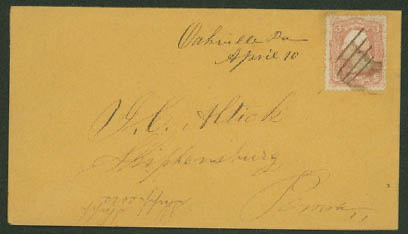 Oakville Pa
April 10
G. C. Altick
Shippensburg
Penna